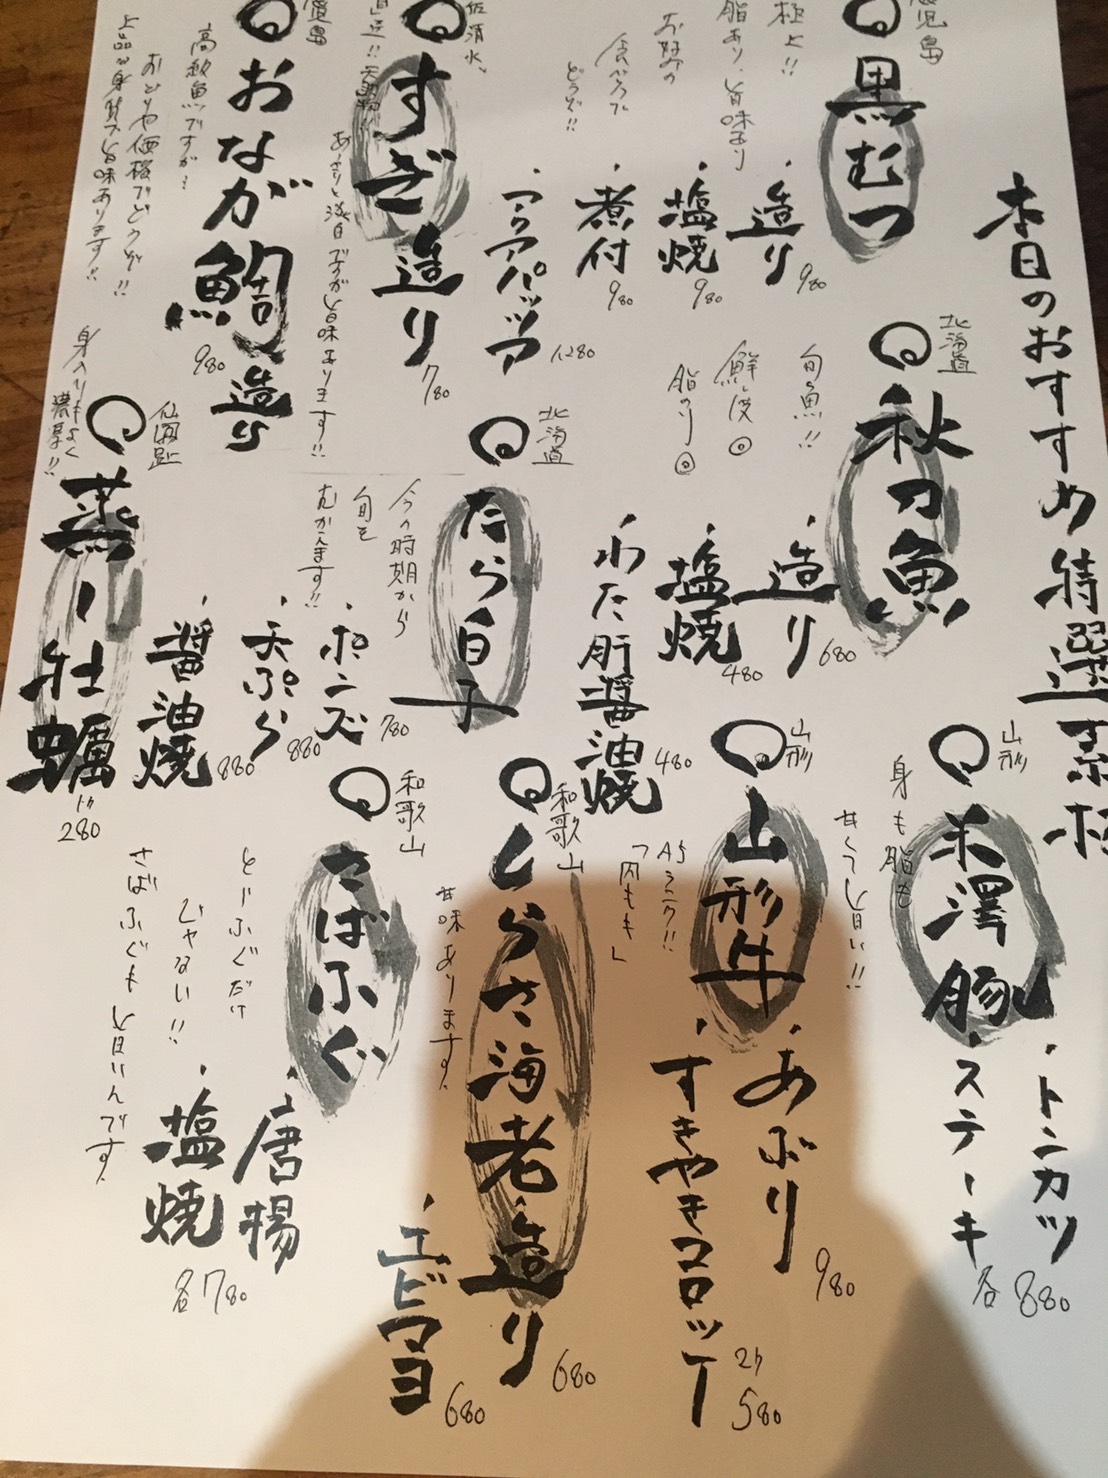 本日のおすすめ特選素材
鹿児島
黒むつ
極上!!
脂あり、旨味あり
お好みの
食べ方で
どうぞ!!
・造り 980
・塩焼 980
・煮付 980
・アクアパッツァ 1280
北海道
秋刀魚
旬の魚!!
鮮度◎
脂のり◎
・造り 680
・塩焼 480
・わた肝醤油焼 480
山形
米澤豚
身も脂も
甘くて旨い!!
・トンカツ
・ステーキ
各880
山形
山形牛
A5ランク!!
「内もも」
・あぶり 980
・すきやきコロッケ 2ケ 580
すぎ造り 780
直送!!天然物!!
あっさりと淡白ですが旨味あります!!
北海道
たら白子
今の時期から
旬を
むかえます!!
・ポンズ 780
・天ぷら 880
・醤油焼 880
和歌山
しらさ海老
甘味あります。
・造り 680
・エビマヨ 680
おなが鯛造り 980
高級魚ですが…
おどりや価格でどうぞ!!
上品な身質で旨味あります!!
蒸し牡蠣
1ケ 280
身入りもよく
濃厚!!
和歌山
さばふぐ
とらふぐだけ
じゃない!!
さばふぐも旨いんです。
・唐揚
・塩焼
各780